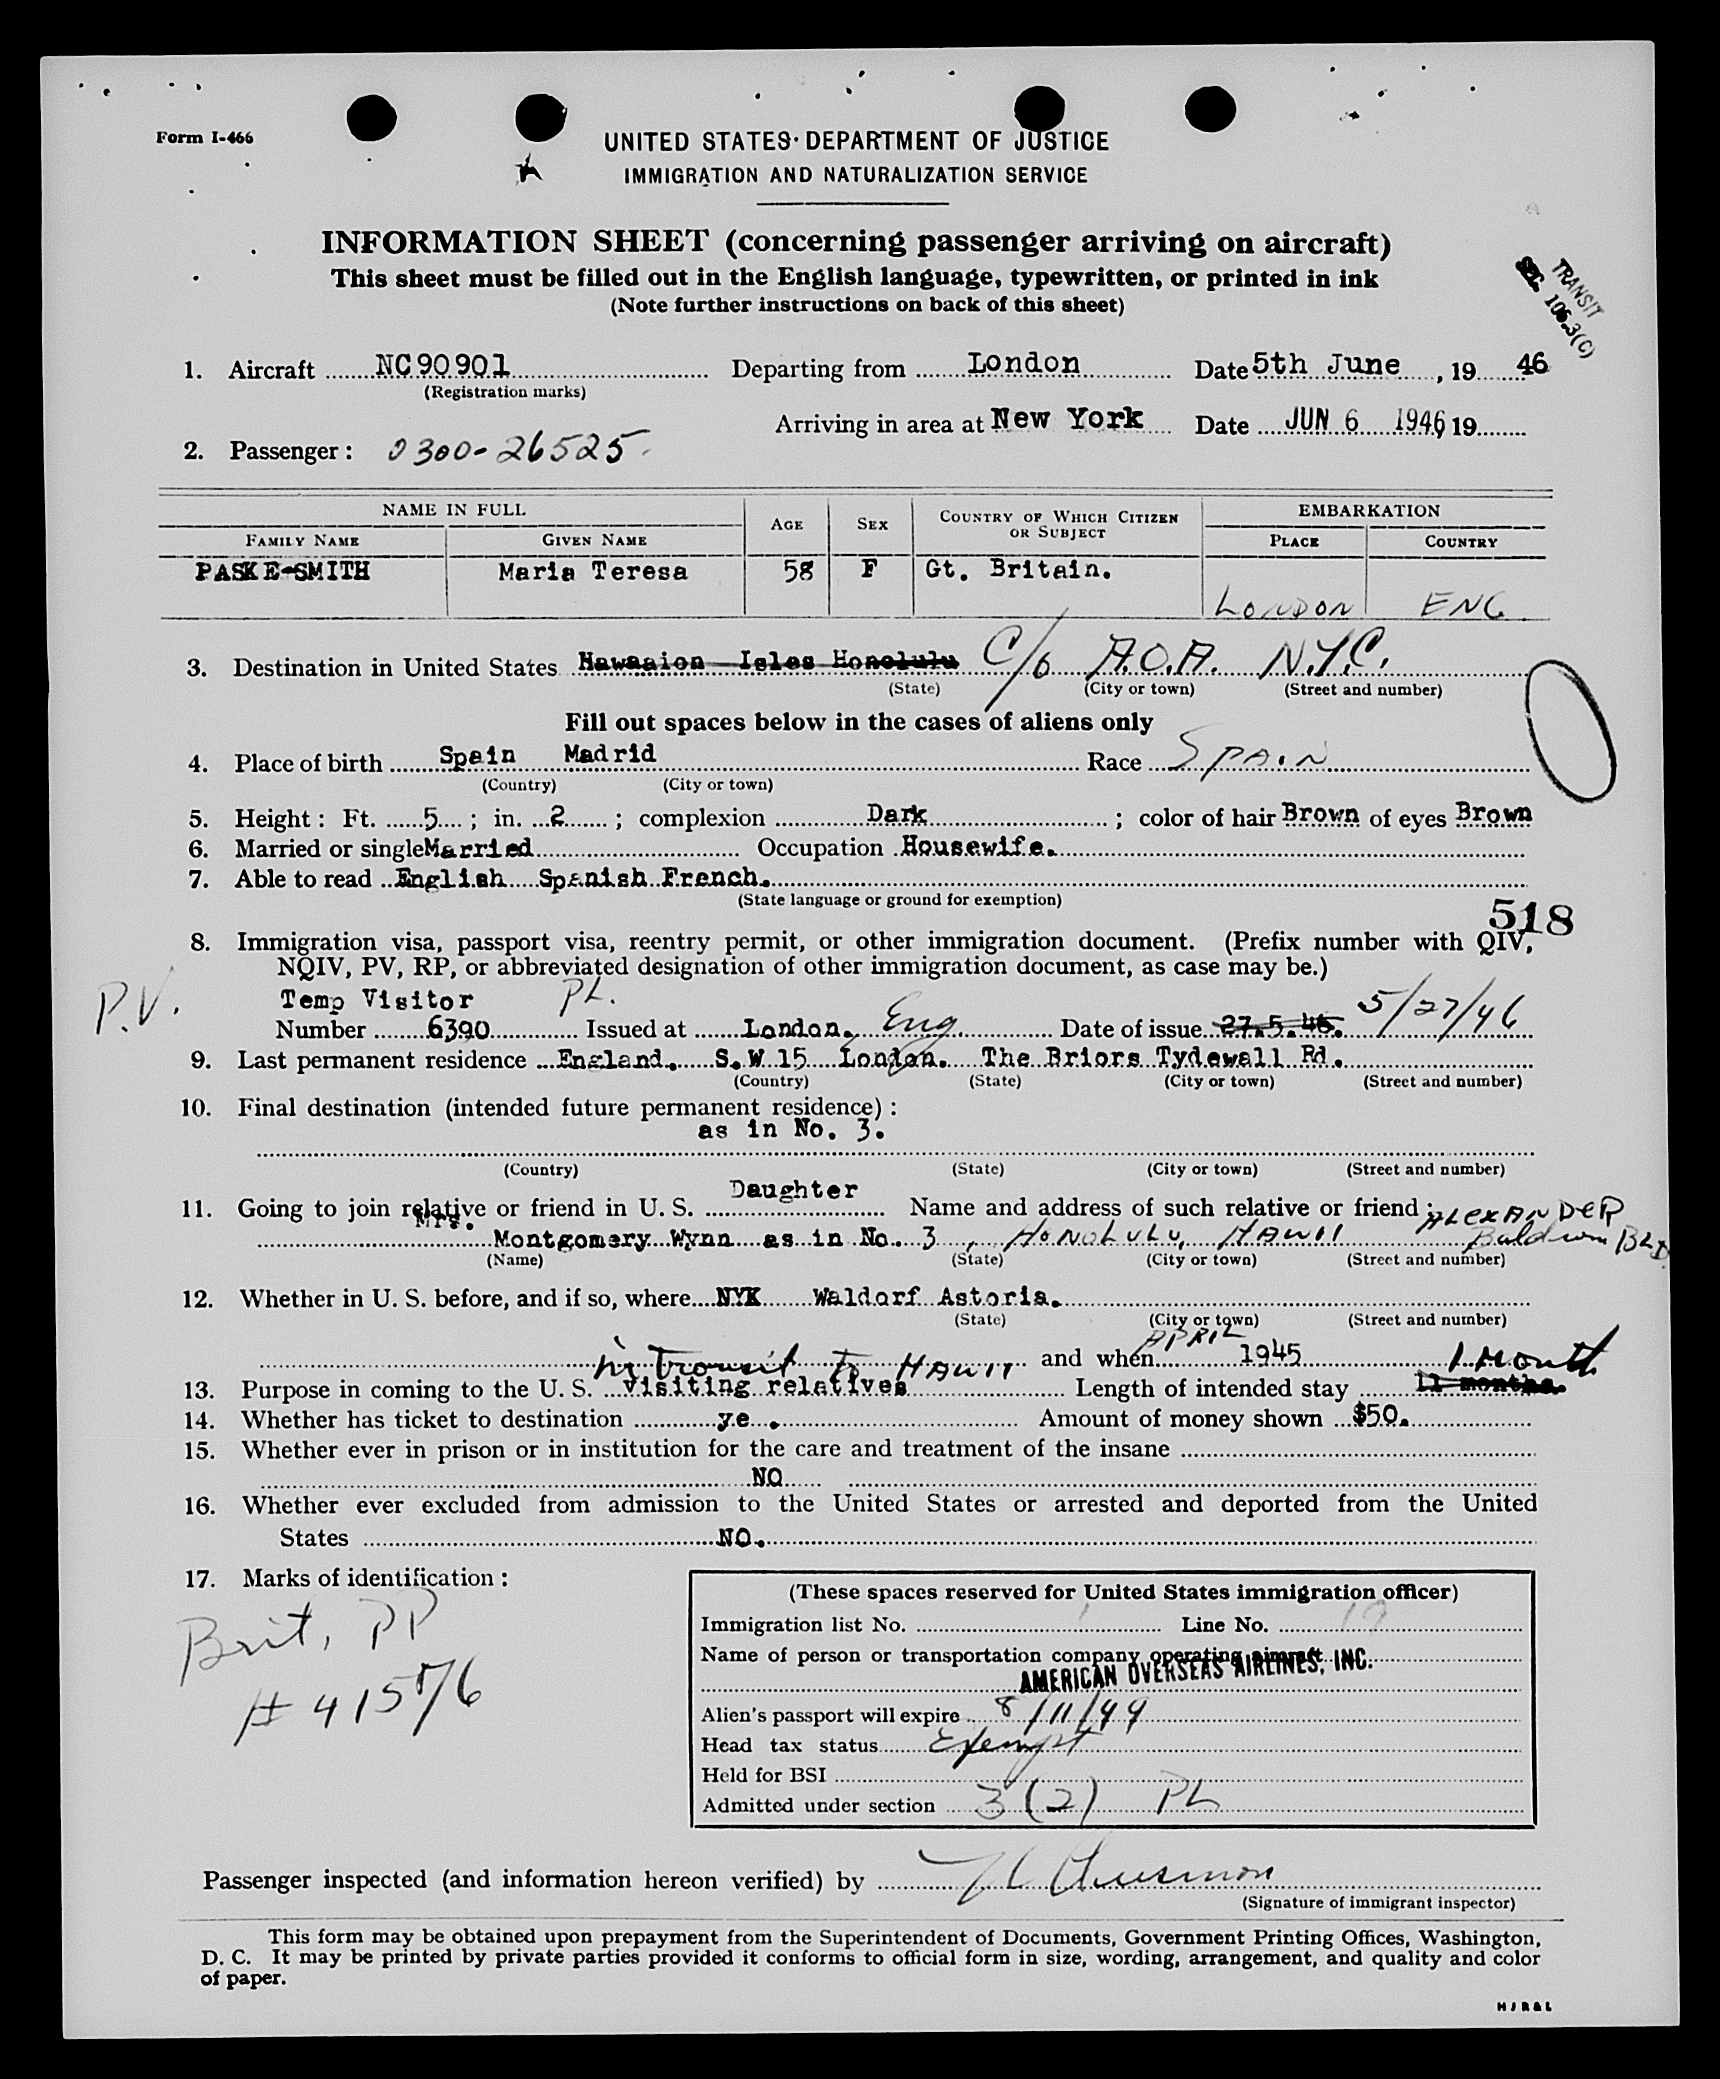 Form I-466
UNITED STATES DEPARTMENT OF JUSTICE
IMMIGRATION AND NATURALIZATION SERVICE
INFORMATION SHEET (concerning passenger arriving on aircraft)
This sheet must be filled out in the English language, typewritten, or printed in ink
(Note further instructions on back of this sheet)
TRANSIT
SEC. 106.3(C)
1. Aircraft NC90901 Departing from London Date 5th June, 19 46
(Registration marks)
Arriving in area at New York Date JUN 6 1946 19
2. Passenger: 0300-26525
NAME IN FULL AGE SEX COUNTRY OF WHICH CITIZEN OR SUBJECT EMBARKATION
FAMILY NAME GIVEN NAME PLACE COUNTRY
PASKE-SMITH Maria Teresa 58 F Gt. Britain.
LONDON ENG
3. Destination in United States Hawaaion Isles Honolulu C/o A.O.A. N.Y.C.
(State) (City or town) (Street and number)
Fill out spaces below in the cases of aliens only
4. Place of birth Spain Madrid Race SPAIN
(Country) (City or town)
5. Height: Ft. 5; in. 2; complexion Dark; color of hair Brown of eyes Brown
6. Married or single Married Occupation Housewife.
7. Able to read English Spanish French.
(State language or ground for exemption)
518
8. Immigration visa, passport visa, reentry permit, or other immigration document. (Prefix number with QIV,
NQIV, PV, RP, or abbreviated designation of other immigration document, as case may be.)
P.V. Temp Visitor PL.
Number 6390 Issued at London. Eng Date of issue 27.5.46. 5/27/46
9. Last permanent residence England. S.W 15 London. The Briors Tydewall Rd.
(Country) (State) (City or town) (Street and number)
10. Final destination (intended future permanent residence):
as in No. 3.
(Country) (State) (City or town) (Street and number)
11. Going to join relative or friend in U. S. Daughter Name and address of such relative or friend: ALEXANDER
Mrs. Montgomery Wynn as in No. 3, HONOLULU, HAWII Baldwin BLD
(Name) (State) (City or town) (Street and number)
12. Whether in U. S. before, and if so, where NYK Waldorf Astoria.
(State) (City or town) (Street and number)
in Transit to HAWII and when APRIL 1945 1 Month
13. Purpose in coming to the U. S. visiting relatives Length of intended stay 11 months.
14. Whether has ticket to destination ye . Amount of money shown $50.
15. Whether ever in prison or in institution for the care and treatment of the insane
NO
16. Whether ever excluded from admission to the United States or arrested and deported from the United
States NO.
17. Marks of identification:
Brit, PP
# 41576
(These spaces reserved for United States immigration officer)
Immigration list No. 1 Line No. 19
Name of person or transportation company operating aircraft
AMERICAN OVERSEAS AIRLINES, INC.
Alien's passport will expire 8/11/49
Head tax status Exempt
Held for BSI
Admitted under section 3 (2) PL
Passenger inspected (and information hereon verified) by
(Signature of immigrant inspector)
This form may be obtained upon prepayment from the Superintendent of Documents, Government Printing Offices, Washington,
D. C. It may be printed by private parties provided it conforms to official form in size, wording, arrangement, and quality and color
of paper.
HJR&L